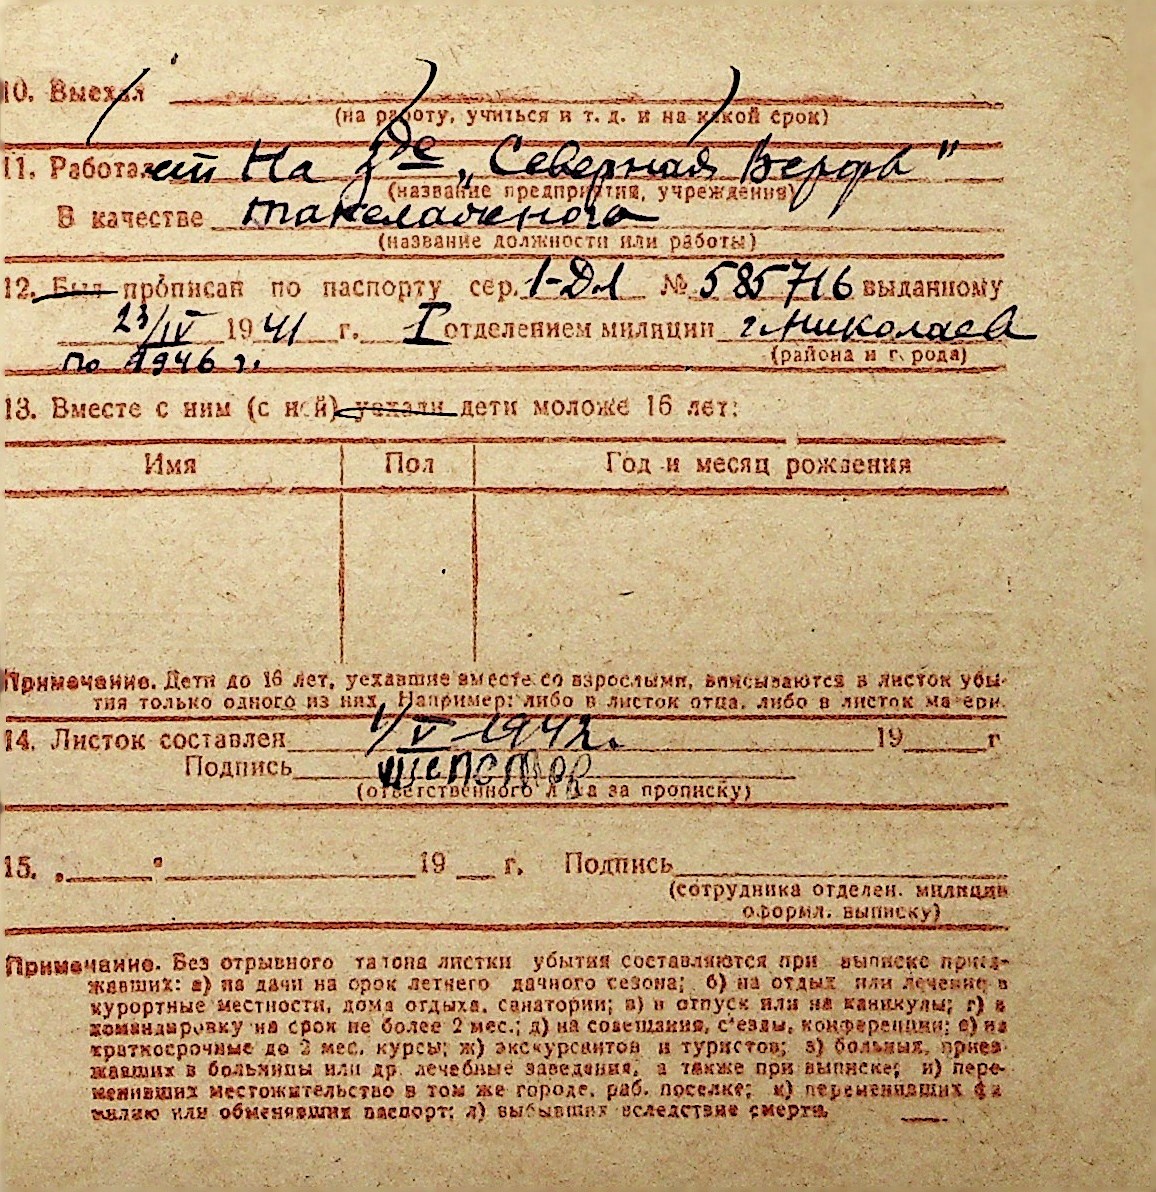 10. Выехал
(на работу, учиться и т. д. и на какой срок)
11. Работает на з-де „Северная Верфь"
(название предприятия, учреждения)
В качестве такелажного
(название должности или работы)
12. Был прописан по паспорту сер. 1-ДЛ № 585716 выданному
23/IV 1941 г. I отделением милиции г. Николаев
по 1946 г. (района и города)
13. Вместе с ним (с ней) уехали дети моложе 16 лет:
Имя Пол Год и месяц рождения
Примечание. Дети до 16 лет, уехавшие вместе со взрослыми, вписываются в листок убы-
тия только одного из них. Например: либо в листок отца, либо в листок матери.
14. Листок составлен 1/V 1942 г. 19 г
Подпись
(ответственного лица за прописку)
15. „ " 19 г. Подпись
(сотрудника отделен. милиции
оформл. выписку)
Примечание. Без отрывного талона листки убытия составляются при выписке приез-
жавших: а) на дачи на срок летнего дачного сезона; б) на отдых или лечение в
курортные местности, дома отдыха, санатории; в) в отпуск или на каникулы; г) в
командировку на срок не более 2 мес.; д) на совещания, с'езды, конференции; е) на
краткосрочные до 2 мес. курсы; ж) экскурсантов и туристов; з) больных, приез-
жавших в больницы или др. лечебные заведения, а также при выписке; и) пере-
менивших местожительство в том же городе, раб. поселке; к) переменивших фа
милию или обменявших паспорт; л) выбывших вследствие смерти.